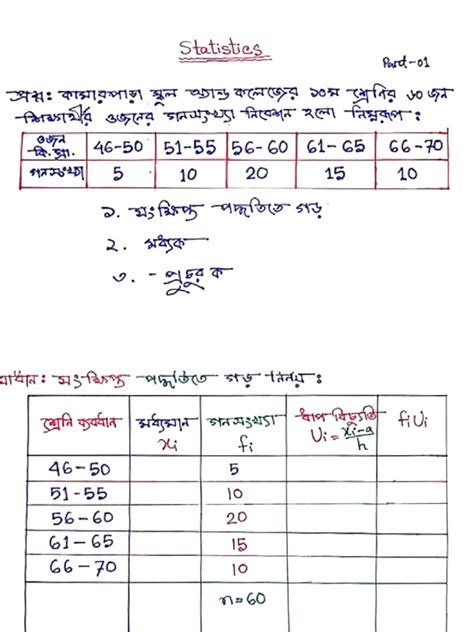 Statistics
Part-01
প্রশ্ন: কামারপাড়া স্কুল অ্যান্ড কলেজের ১০ম শ্রেণির ৬০ জন
শিক্ষার্থীর ওজনের গনসংখ্যা নিবেশন হলো নিম্নরূপ:
ওজন কি.গ্রা. 46-50 51-55 56-60 61-65 66-70
গনসংখ্যা 5 10 20 15 10
১. সংক্ষিপ্ত পদ্ধতিতে গড়
২. মধ্যক
৩. - প্রচুরক
মাধান: সংক্ষিপ্ত পদ্ধতিতে গড় নির্নয়:
শ্রেনি ব্যবধান মধ্যমান xi গনসংখ্যা fi ধাপ বিচ্যুতি Ui = xi-a/h fiUi
46-50 5
51-55 10
56-60 20
61-65 15
66-70 10
n=60